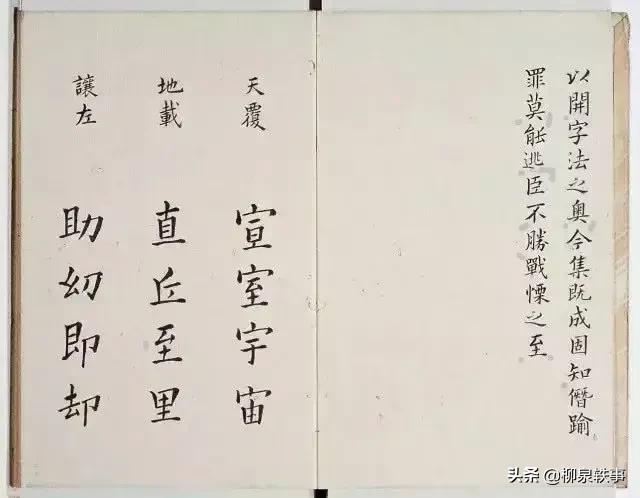 以開字法之奧今集既成固知僭踰
罪莫能逃臣不勝戰慄之至
天覆
宣室宇宙
地載
直丘至里
讓左
助幼即却
头条 @柳泉轶事